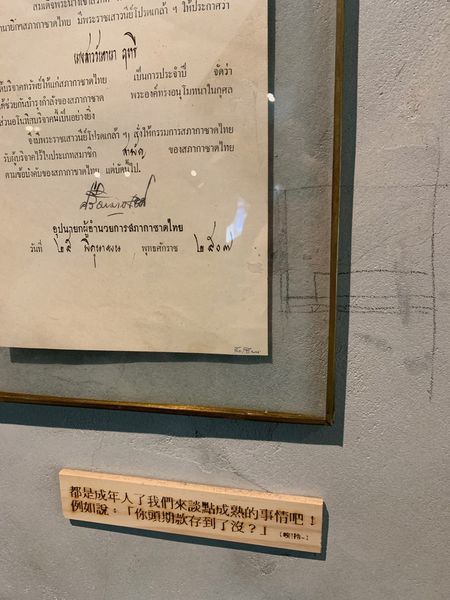 สมเด็จพระนางเจ้า
นายิกาสภากาชาดไทย มีพระราชเสาวนีย์โปรดเกล้า ฯ ให้ประกาศว่า
ได้บริจาคทรัพย์ให้แก่สภากาชาดไทย เป็นการประจำปี จัดว่า
ได้ช่วยกันบำรุงกำลังของสภากาชาด พระองค์ทรงอนุโมทนาในกุศล
ส่วนอันได้บริจาคนี้เป็นอย่างยิ่ง
จึงมีพระราชเสาวนีย์โปรดเกล้า ฯ สั่งให้กรรมการสภากาชาดไทย
รับผู้บริจาคไว้ในประเภทสมาชิก สามัญ ของสภากาชาดไทย
ตามข้อบังคับของสภากาชาดไทย แต่บัดนี้ไป.
อุปนายกผู้อำนวยการสภากาชาดไทย
วันที่ ๒๕ พฤษภาคม พุทธศักราช ๒๕๐๗
都是成年人了我們來談點成熟的事情吧！
例如說：「你頭期款存到了沒？」